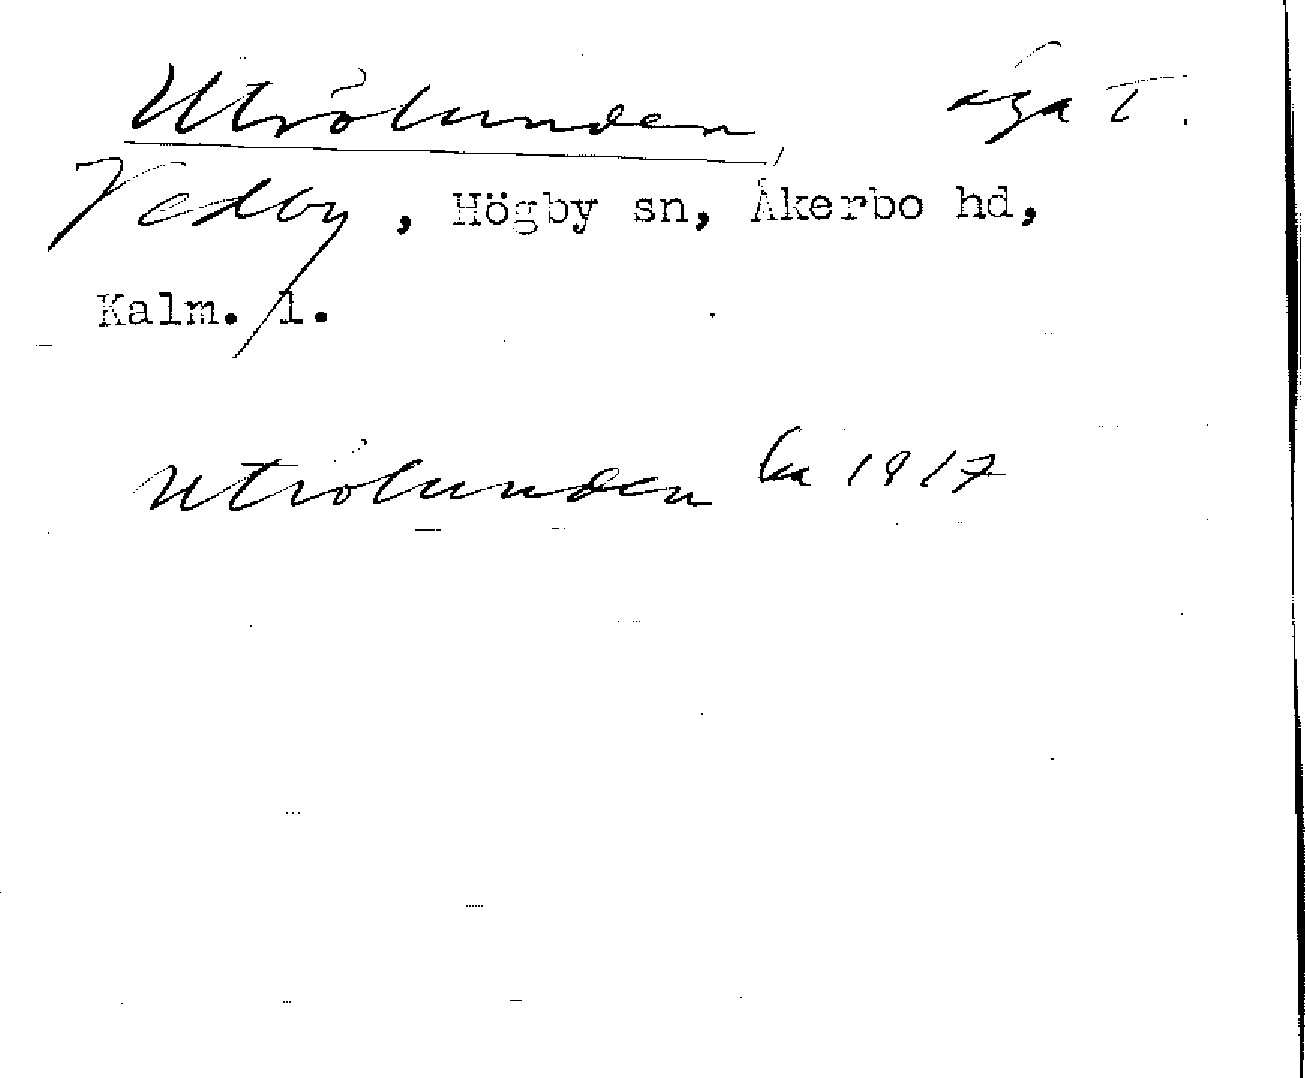 Utrölunden ägat.
Vedby, Högby sn, Åkerbo hd,
Kalm. l.
Utrölunden ka 1917